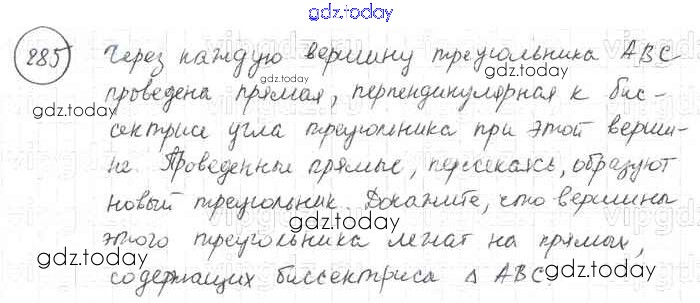 gdz.today
285 Через каждую вершину треугольника ABC
gdz.today
проведена прямая, перпендикулярная к бис-
gdz.today
сектрисе угла треугольника при этой верши-
не. Проведенные прямые, пересекаясь, образуют
gdz.today
новый треугольник. Докажите, что вершины
gdz.today
этого треугольника лежат на прямых,
gdz.today
содержащих биссектриса Δ ABC.